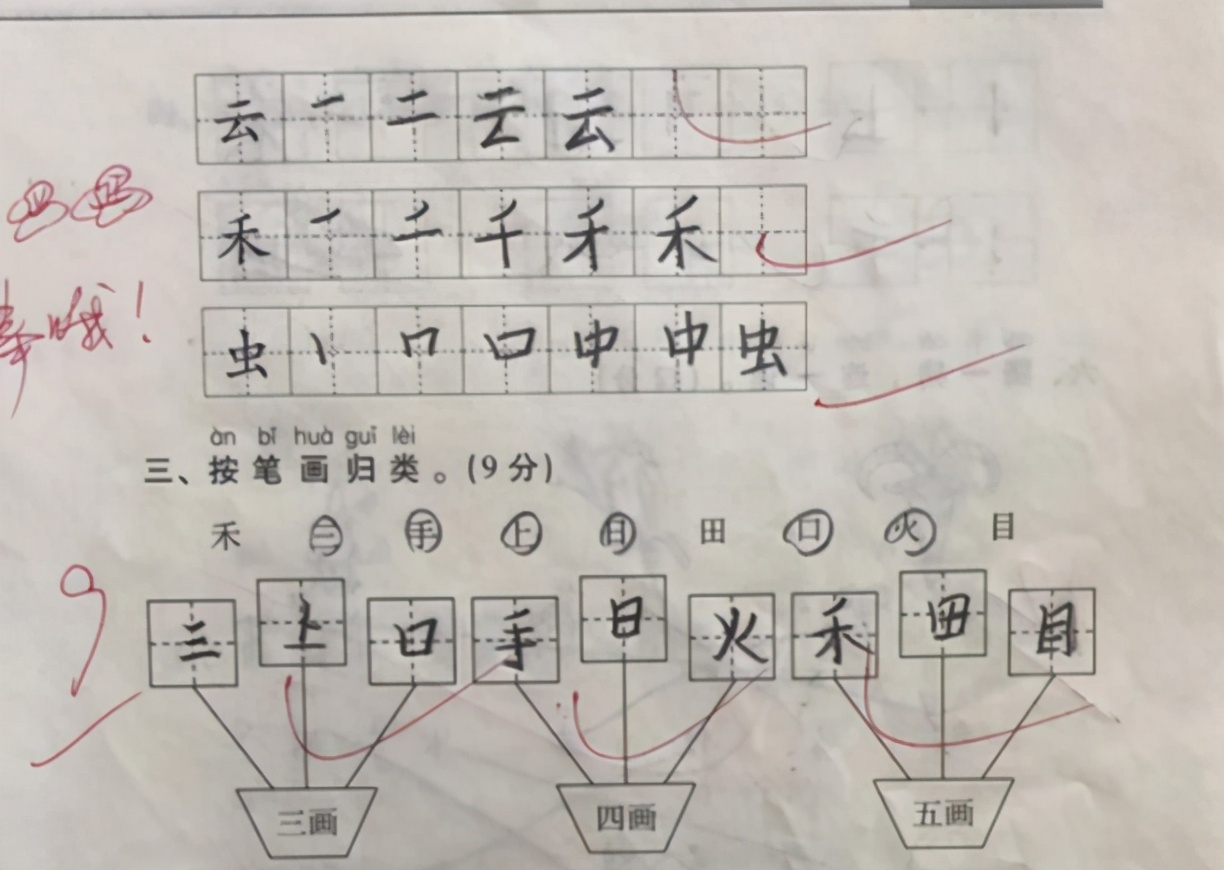 云 一 二 云 云
禾 一 二 千 禾 禾
虫 丨 口 中 中 虫
棒哦！
àn bǐ huà guī lèi
三、按笔画归类。(9分)
禾 三 手 上 日 田 口 火 目
9
三 上 口 手 日 火 禾 田 目
三画 四画 五画